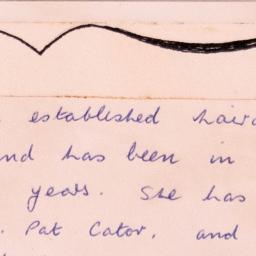 established haird
nd has been in
years. She has
. Pat Cator, and